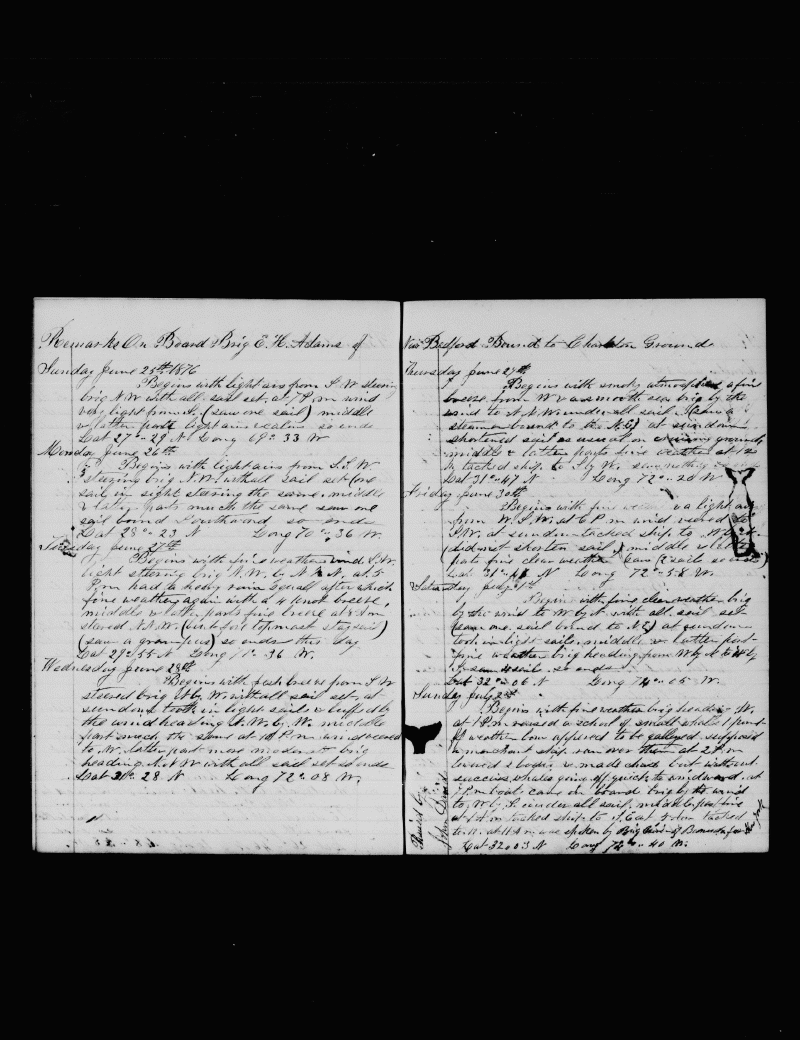 Remarks On Board Brig E. H. Adams of
Sunday June 25th 1876
Begins with light airs from S. W steering
brig N W with all sail set, at 7 P. m wind
very light from (saw one sail) middle
& latter part light airs & calm so ends
Lat 27°- 29 N Long 69°- 33 W
Monday June 26th
Begins with light airs from S. S. W.
steering brig N. W. with all sail set (one
sail in sight steering the same, middle
& latter parts much the same saw one
sail bound Southward so ends
Lat 28°- 23 Long 70°- 36 W
Tuesday June 27th
Begins with fine weather wind S. W.
light steering brig N. W. by N at 5
P. m had a heavy rain Squall after which
fine weather again with a 4 knot breeze,
middle & latter parts fine breeze at
steered N. N. W.
(saw a grampus) so ends this day
Lat 29°- 55 N Long 71°- 36 W.
Wednesday June 28th
Begins with fresh breeze from S W
steered brig N by W. with all sail set, at
sundown took in light sails & luffed by
the wind heading N. W. by W. middle
part much the same at P. m wind veered
to W. latter part more moderate brig
heading N W with all sail set so ends
Lat 31°- 28 N Long 72°- 08 W.
New Bedford Bound to Charleston Grounds
Thursday June 29th
Begins with smoky atmosphere a fine
breeze from W & a smooth sea brig by the
wind to N. N. W. under all sail (saw a
steamer bound to the N E) at sundown
shortened sail as usual on cruising ground,
middle & latter parts fine weather at 12
tacked ship to S by W.
Lat 31°- 47 N Long 72°- 20 W
Friday June 30th
Begins with fine & a light air
from W. S. W. at 6 P. m wind veered to
S. W. at sundown tacked ship to
(did not shorten sail) middle & latter
parts fine clear weather (saw 2 sails so ends)
N Long 72°- 58 W.
Saturday July 1st
Begins with fine clear weather brig
by the wind to W by N with all sail set
(saw one sail bound to N. E) at sundown
took in light sails, middle & latter part
fine weather brig heading from W by N to W by
S saw 4 sails, so ends
Lat 32°- 06 N Long 74°- 05 W.
Sunday July 2nd
Begins with fine weather brig heading W.
at 1 P. m raised a school of small whales
weather bow appeared to be gallied, suppose
a merchant ship ran over them at 2 P. m
lowered 2 boats & made chase but without
success, whales going off quick to windward, at
P. m boats came on board brig by the wind
to W by S. under all sail, middle part fine
at 1 A m tacked ship to S. E at tacked
to at 11 A m was spoken by Brig
Lat 32°03 N Long 74°- 40 W.
John